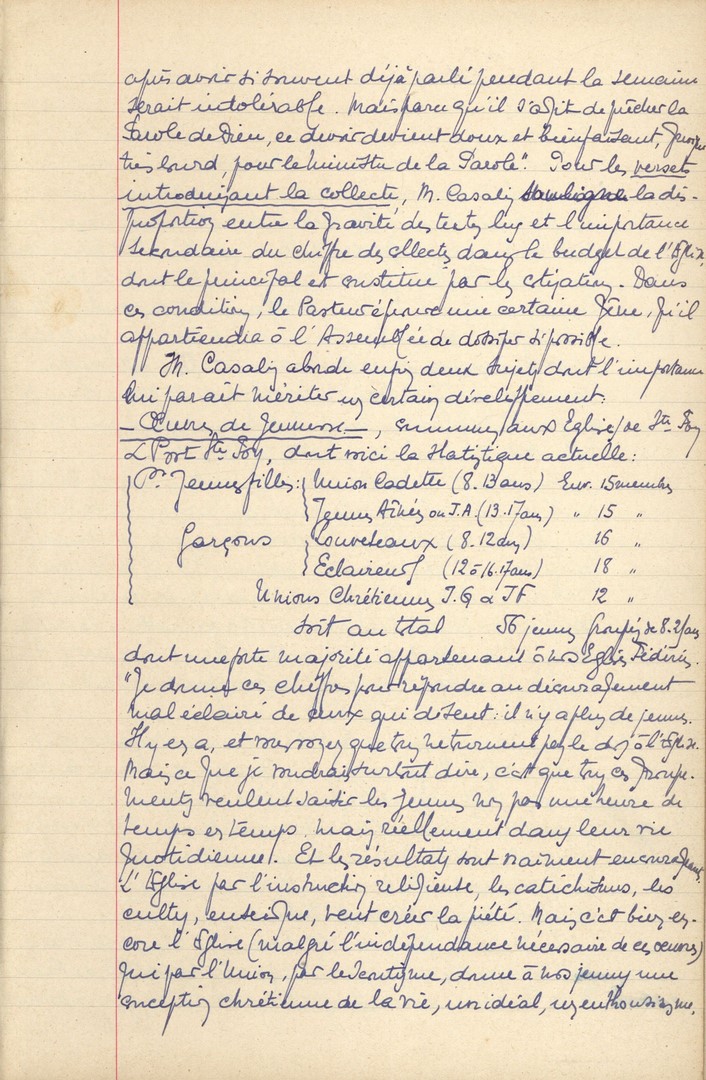 après avoir si souvent déjà parlé pendant la semaine
serait intolérable. Mais parce qu'il s'agit de prêcher la
Parole de Dieu, ce devoir devient doux et bienfaisant, quoique
très lourd, pour le ministre de la Parole". Pour les versets
introduisant la collecte, M. Casalis la dis-
proportion entre la gravité des textes lus et l'importance
secondaire du chiffre des collectes dans le budget de l'Eglise,
dont le principal est constitué par les cotisations. Dans
ces conditions, le Pasteur éprouve une certaine gêne, qu'il
appartiendra à l'Assemblée de dissiper si possible.
M. Casalis aborde enfin deux sujets dont l'importance
lui paraît mériter un certain développement:
- Œuvres de Jeunesse -, communes aux Eglises de Ste Foy
& Port Ste Foy, dont voici la statistique actuelle:
Pr Jeunes filles: Union Cadette (8.13 ans) Env. 15 membres
Jeunes Aînées ou J.A. (13.17 ans) " 15 "
Garçons Louveteaux (8.12 ans) 16 "
Eclaireurs (12 à 16.17 ans) 18 "
Unions Chrétiennes J.G & JF 12 "
soit au total 56 jeunes groupés de 8.21 ans
dont une forte majorité appartenant à nos Eglises Fédérées.
"Je donne ces chiffres pour répondre au découragement
mal éclairé de ceux qui disent: il n'y a plus de jeunes.
Il y en a, et vous voyez que tous ne tournent pas le dos à l'Eglise.
Mais ce que je voudrais surtout dire, c'est que tous ces groupe-
ments veulent saisir les jeunes non pas une heure de
temps en temps, mais réellement dans leur vie
quotidienne. Et les résultats sont vraiment encourageants.
L'Eglise par l'instruction religieuse, les catéchismes, les
cultes, enseigne, veut créer la piété. Mais c'est bien en-
core l'Eglise (malgré l'indépendance nécessaire de ces œuvres)
qui par l'Union, par le scoutisme, donne à nos jeunes une
conception chrétienne de la vie, un idéal, un enthousiasme,